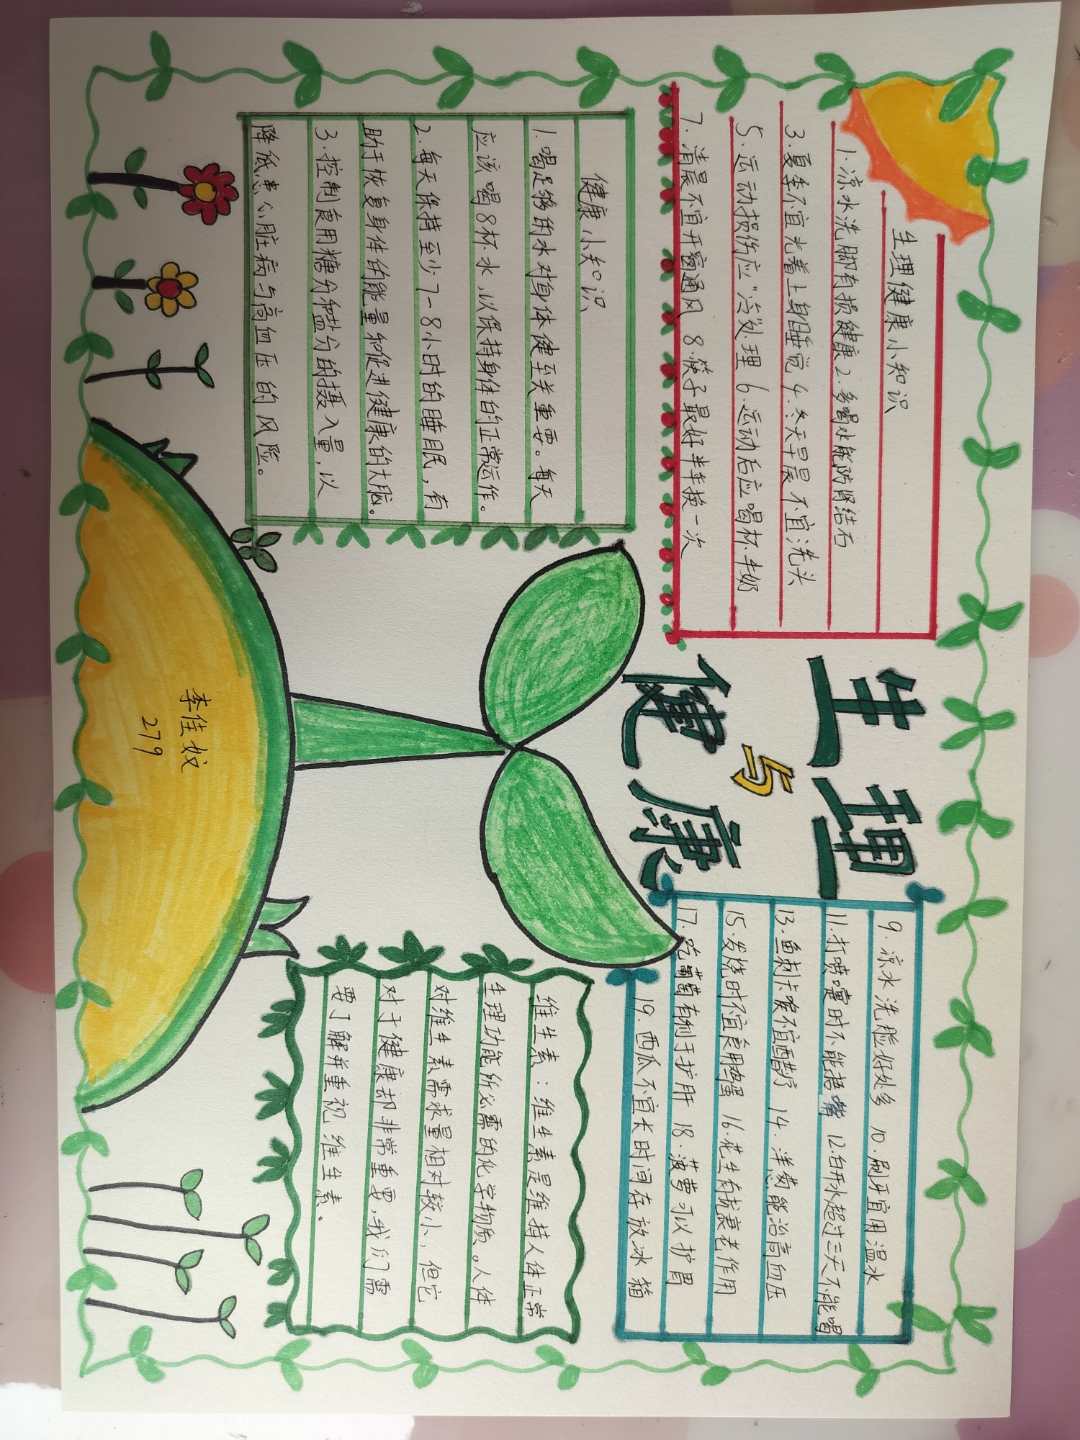 生理健康小知识
1.凉水洗脚有损健康 2.多喝水能防肾结石
3.夏季不宜光着上身睡觉 4.冬天早晨不宜洗头
5.运动损伤应"冷处理 6.运动后应喝杯牛奶
7.清晨不宜开窗通风 8.筷子最好半年换一次
生理
与
健康
9.凉水洗脸好处多 10.刷牙宜用温水
11.打喷嚏时不能捂嘴 12.白开水超过三天不能喝
13.鱼刺卡喉不宜醋疗 14.洋葱能治高血压
15.发烧时不宜食用鸡蛋 16.花生有抗衰老作用
17.吃葡萄有利于护肝 18.菠萝可以护胃
19.西瓜不宜长时间存放冰箱
健康小知识
1.喝足够的水对身体健至关重要。每天
应该喝8杯水,以保持身体的正常运作。
2.每天保持至少7-8小时的睡眠,有
助于恢复身体的能量和促进健康的大脑。
3.控制食用糖分和盐分的摄入量,以
降低患心脏病与高血压的风险。
维生素:维生素是维持人体正常
生理功能所必需的化学物质。人体
对维生素需求量相对较小,但它
对于健康却非常重要,我们需
要了解并重视维生素.
李佳蚊
279